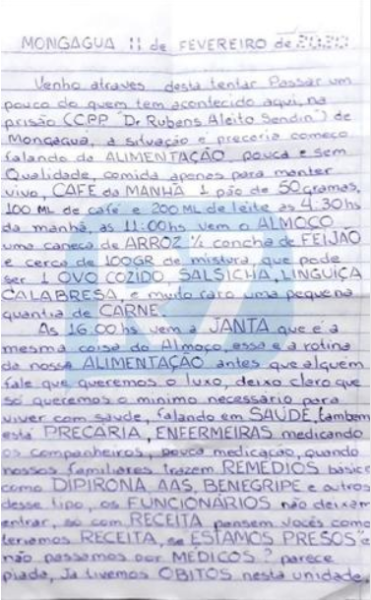 MONGAGUA 11 de FEVEREIRO de 2020
Venho atraves desta tentar Passar um
pouco do quem tem acontecido aqui, na
prisão (CPP "Dr Rubens Aleito Sendin") de
Mongaguá, a situação é precaria começo
falando da ALIMENTAÇÃO, pouca e sem
Qualidade, comida apenas para manter
vivo, CAFE da MANHÃ 1 pão de 50 gramas,
100 ML de café e 200 ML de leite as 4:30hs
da manhã, as 11:00hs vem o ALMOÇO
uma caneca de ARROZ ½ concha de FEIJÃO
e cerca de 100GR de mistura, que pode
ser 1 OVO COZIDO, SALSICHA, LINGUIÇA
CALABRESA, e muito raro uma pequena
quantia de CARNE.
As 16:00hs vem a JANTA que é a
mesma coisa do Almoço, essa é a rotina
da nossa ALIMENTAÇÃO antes que alguém
fale que queremos o luxo, deixo claro que
só queremos o minimo necessário para
viver com saude, falando em SAÚDE, tambem
está PRECÁRIA, ENFERMEIRAS medicando
os companheiros, pouca medicação, quando
nossos familiares trazem REMÉDIOS básico
como DIPIRONA, AAS, BENEGRIPE e outros
desse tipo, os FUNCIONÁRIOS não deixam
entrar, só com RECEITA pensem vocês como
teriamos RECEITA, se ESTAMOS PRESOS e
não passamos por MÉDICOS? parece
piada, Ja tivemos OBITOS nesta unidade,
R7